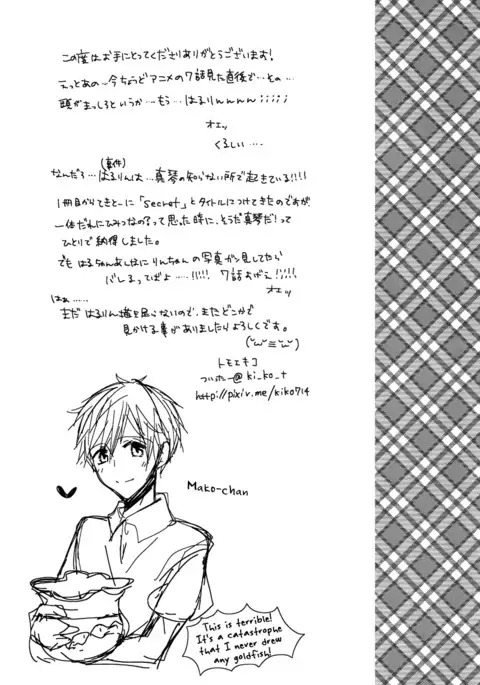 この度はお手にとってくださりありがとうございます!
えっとあの〜今ちょうどアニメの7話見た直後で…その…
頭がまっしろというか…もう…はるりんんんん;;;;;
オエッ
くるしい….
(事件)
なんだろ…はるりんは…真琴の知らない所で起きている!!!!
1冊目からてきとーに「secret」とタイトルにつけてきたのですが
一体だれにひみつなの?って思った時に、そうだ真琴だ!って
ひとりで納得しました。
でもはるちゃんあしなにりんちゃんの写真ガン見してたら
バレるってばよ……!!!!! 7話おがえ!!!!!
オエッ
はぁ……
まだはるりん描き足らないので、またどこかで
見かける事がありましたらよろしくです。
トモエキコ
ついったー@ki_ko_t
http://pixiv.me/kiko714
Mako-chan
This is terrible!
It's a catastrophe
that I never drew
any goldfish!